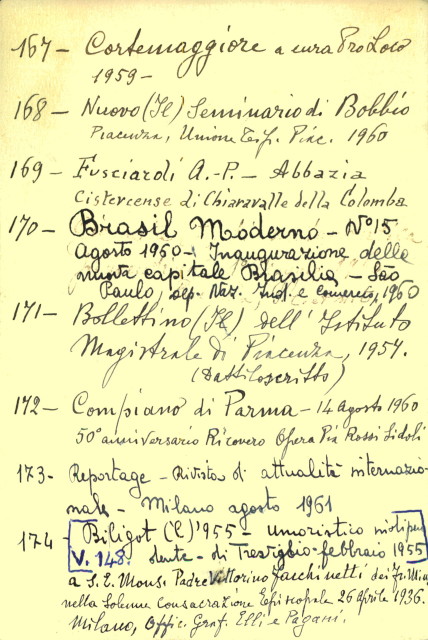 167 - Cortemaggiore a cura Pro Loco
1959 -
168 - Nuovo (Il) Seminario di Bobbio
Piacenza, Unione Tip. Piac. 1960
169 - Fusciardi A.-P. - Abbazia
Cistercense di Chiaravalle della Colomba
170 - Brasil Moderno - N° 15
agosto 1960 - Inaugurazione della
nuova capitale Brasilia - São
Paulo, dep. Naz. Ind. e comercio, 1960
171 - Bollettino (Il) dell' Istituto
Magistrale di Piacenza, 1957.
(Dattiloscritto)
172 - Compiano di Parma - 14 agosto 1960
50° anniversario Ricovero Opera Pia Rossi Sidoli
173 - Reportage - Rivista di attualità internazio-
nale - Milano agosto 1961
174 - Biligot (El) '955 - umoristico
V. 148. dente - di Treviglio - febbraio 1955
a S. E. Mons. Padre Vittorino Facchinetti dei Fr. Min.
nella Solenne Consacrazione Episcopale 26 Aprile 1936.
Milano, Offic. Graf. Elli e Pagani.